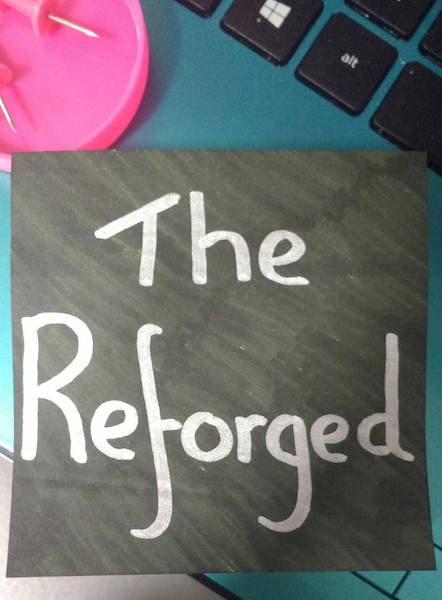 alt
The
Reforged